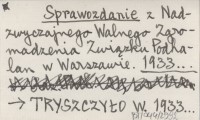 Sprawozdanie z Nad-
zwyczajnego Walnego Zgro-
madzenia Związku Podha-
lan w Warszawie. 1933...
→ TRYSZCZYŁO W. 1933...